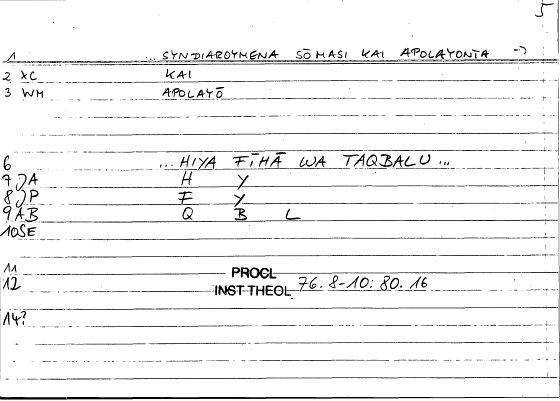 5
1 ... SYNDIAROYMENA SŌMASI KAI APOLAYONTA →
2 XC KAI
3 WH APOLAYŌ
6 ... HIYA FĪHĀ WA TAQBALU ...
7 )A H Y
8 )P F Y
9 AB Q B L
10 SE
11
12 PROCL INST THEOL 76. 8-10: 80. 16
14?